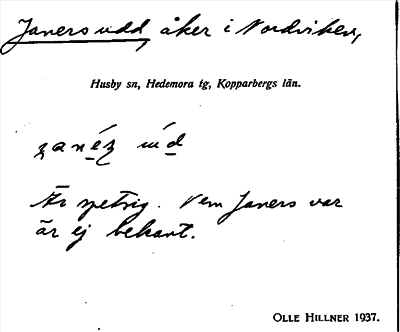 Janersudd, åker i Nordviken,
Husby sn, Hedemora tg, Kopparbergs län.
Är spetsig. Vem Janers var
är ej bekant.
OLLE HILLNER 1937.